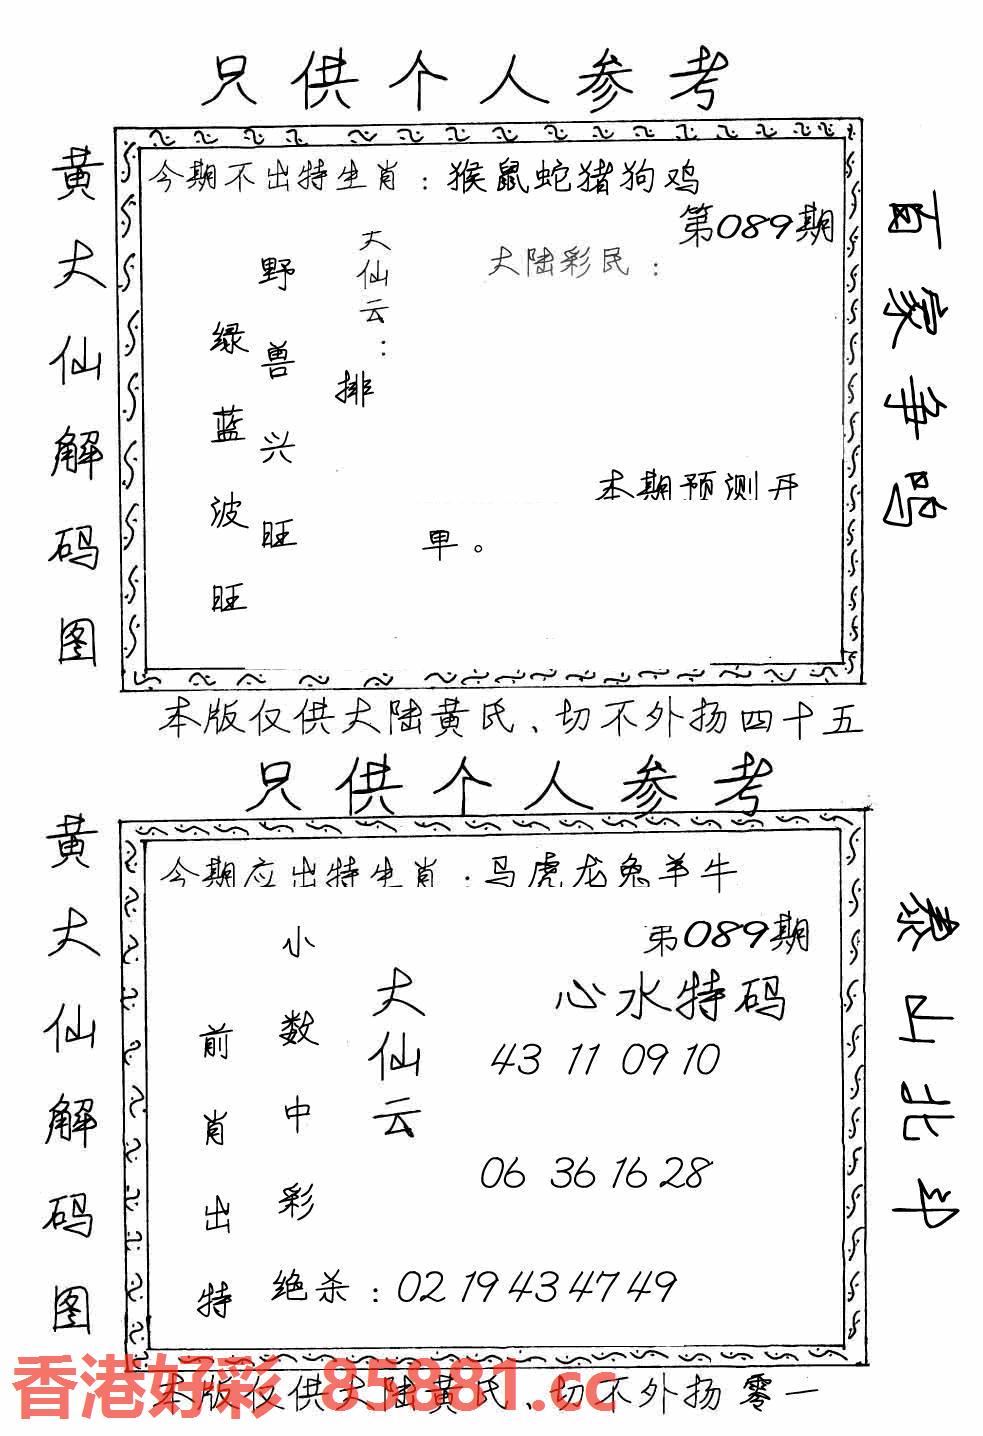 只供个人参考
黄大仙解码图
今期不出特生肖：猴鼠蛇猪狗鸡
第089期
大陆彩民：
大仙云：
排
野兽兴旺
绿蓝波旺
本期预测开
单。
百家争鸣
本版仅供大陆黄氏、切不外扬四十五
只供个人参考
黄大仙解码图
今期应出特生肖：马虎龙兔羊牛
第089期
心水特码
大仙云
小数中彩
前肖出特
43 11 09 10
06 36 16 28
绝杀：02 19 43 47 49
泰山北斗
香港好彩 85881.cc
本版仅供大陆黄氏、切不外扬 零一